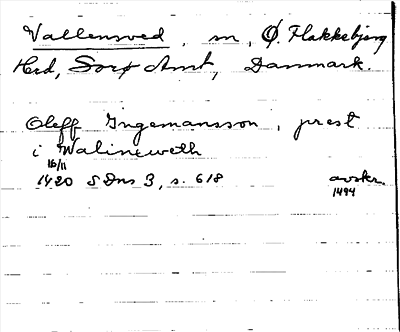 Vallensved, sn, Ø. Flakkebjerg
Hrd, Sorø Amt, Danmark.
Oleff Ingemansson, prest
i Walineweth
16/11
1420 SDns 3, s. 618 avskr.
1494